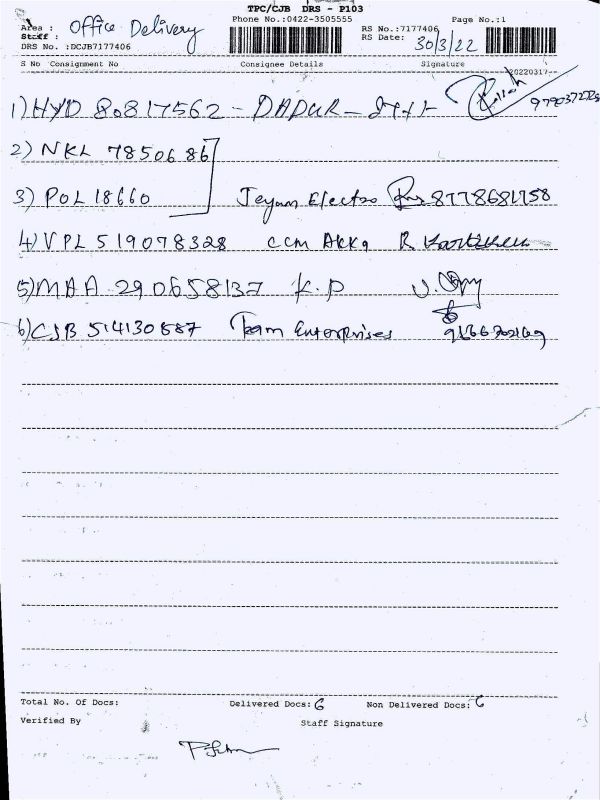 TPC/CJB DRS - P103
Area : Office Delivery Phone No.:0422-3505555 Page No.:1
Staff : RS No.:7177406
DRS No. :DCJB7177406 RS Date: 30/3/22
S No Consignment No Consignee Details Signature
20220317--
1) HYD 80817562 -
2) NKL 7850686
3) POL 18660 Jeyam Electro 8778681758
4) VPL 519078328 CCM Akka R
5) MAA 290658137 K.P
6) CJB 514130587 Team Enterprises
Total No. Of Docs: Delivered Docs: 6 Non Delivered Docs:
Verified By Staff Signature